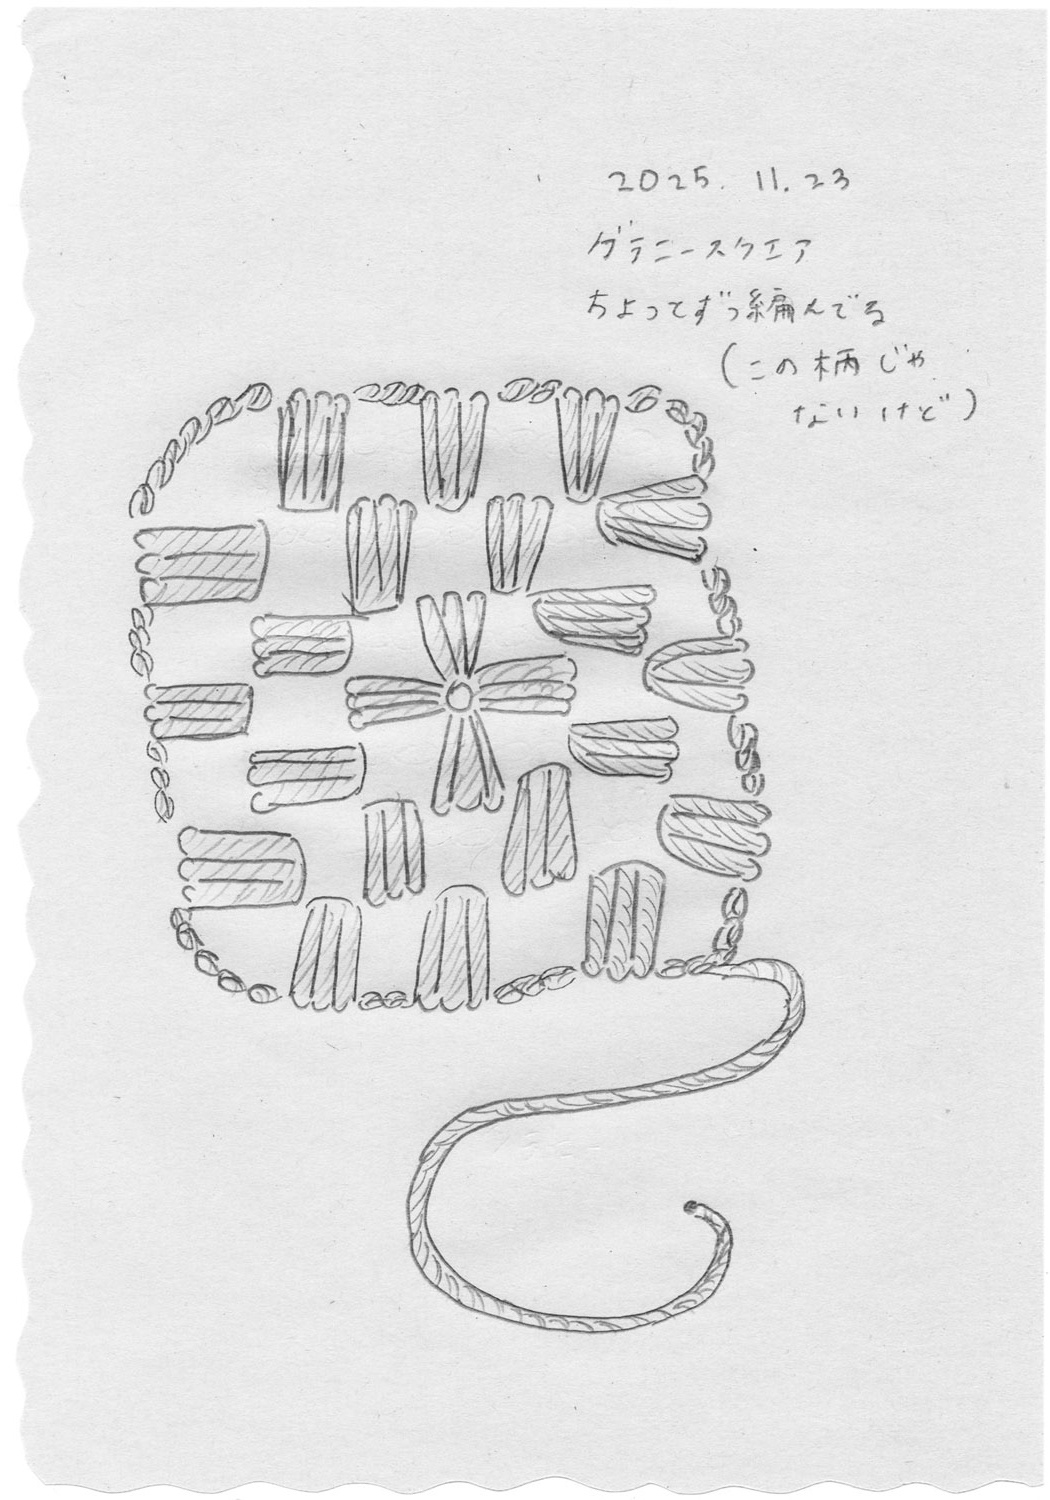 2025. 11. 23
グラニースクエア
ちょってずつ編んでる
(この柄じゃ
ないけど)